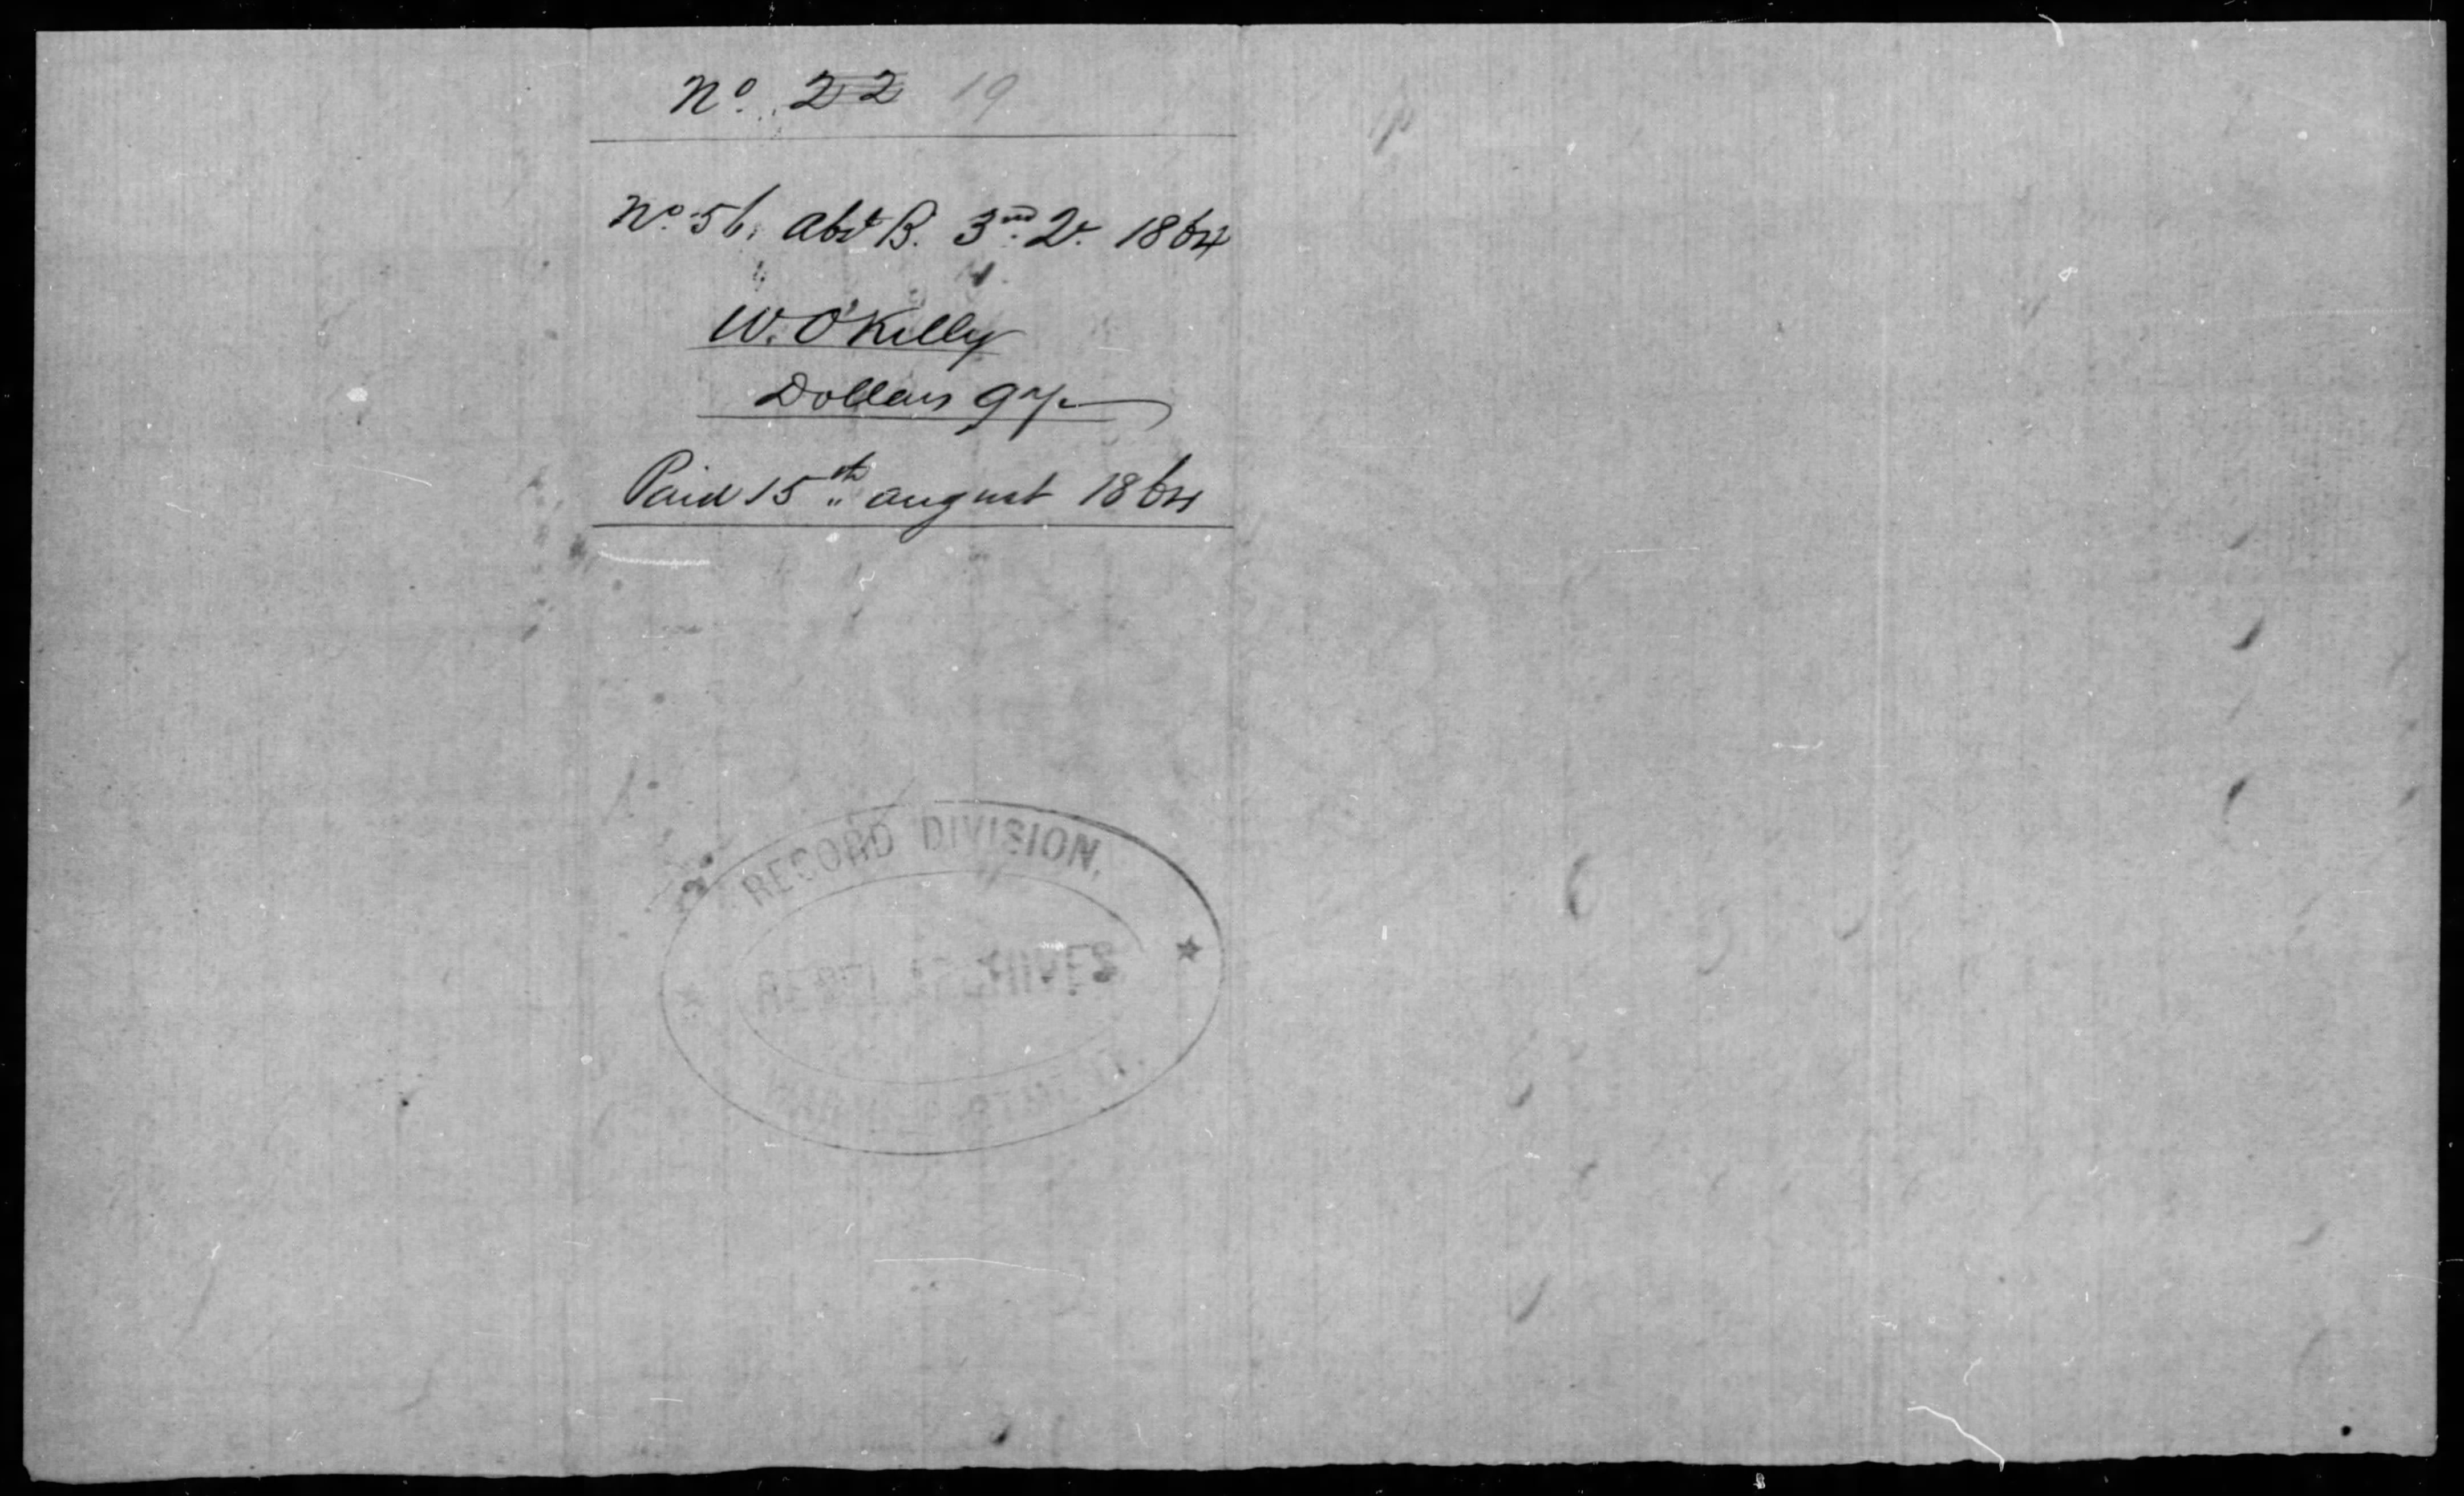 No. 22 19
No. 56, Abst B. 3rd Qr. 1864
W. O'Kelly
Dollars 97
Paid 15th August 1864
RECORD DIVISION,
REBEL ARCHIVES
WAR DEPARTMENT.